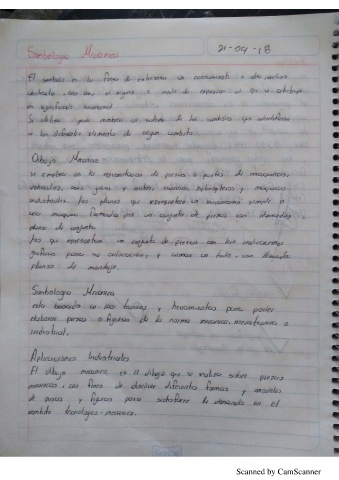 Simbologia Mecanica 21-04-18
El simbolo es la forma de relacionar un
abstracta, con un signo o modo de expresion al que se atribuye
un significado
Se utiliza para nombrar al numero de los simbolos que identifican
a los diferentes elementos de algun ambito.
Dibujo Mecanico
se emplea en la representacion de piezas o partes de maquinas,
vehiculos, helicopteros y maquinas
industriales. Los planos que representan un mecanismo simple o
una maquina formada por un conjunto de piezas son llamados
plano de conjunto.
Los que representan un conjunto de piezas con las indicaciones
graficas para su colocacion, y armar un todo, son llamados
planos de montaje.
Simbologia Mecanica
esta basada en las tecnicas y herramientas para poder
elaborar piezas o figuras de la norma mecanica, o
industrial.
Aplicaciones Industriales
El dibujo mecanico, es el dibujo que se realiza sobre piezas
mecanicas, con fines de diseñar diferentes formas y modelos
de piezas y figuras para satisfacer la demanda en el
ambito tecnologico-mecanico.
Scanned by CamScanner